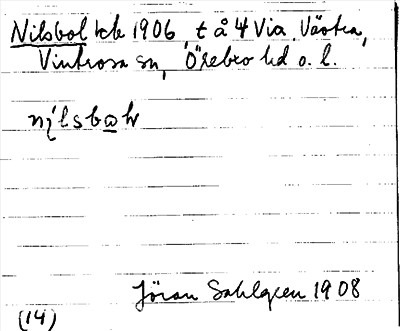 Nilsbol kk 1906, t å 4 Via, Västra,
Vintrosa sn, Örebro hd o. l.
Jöran Sahlgren 1908
(14)